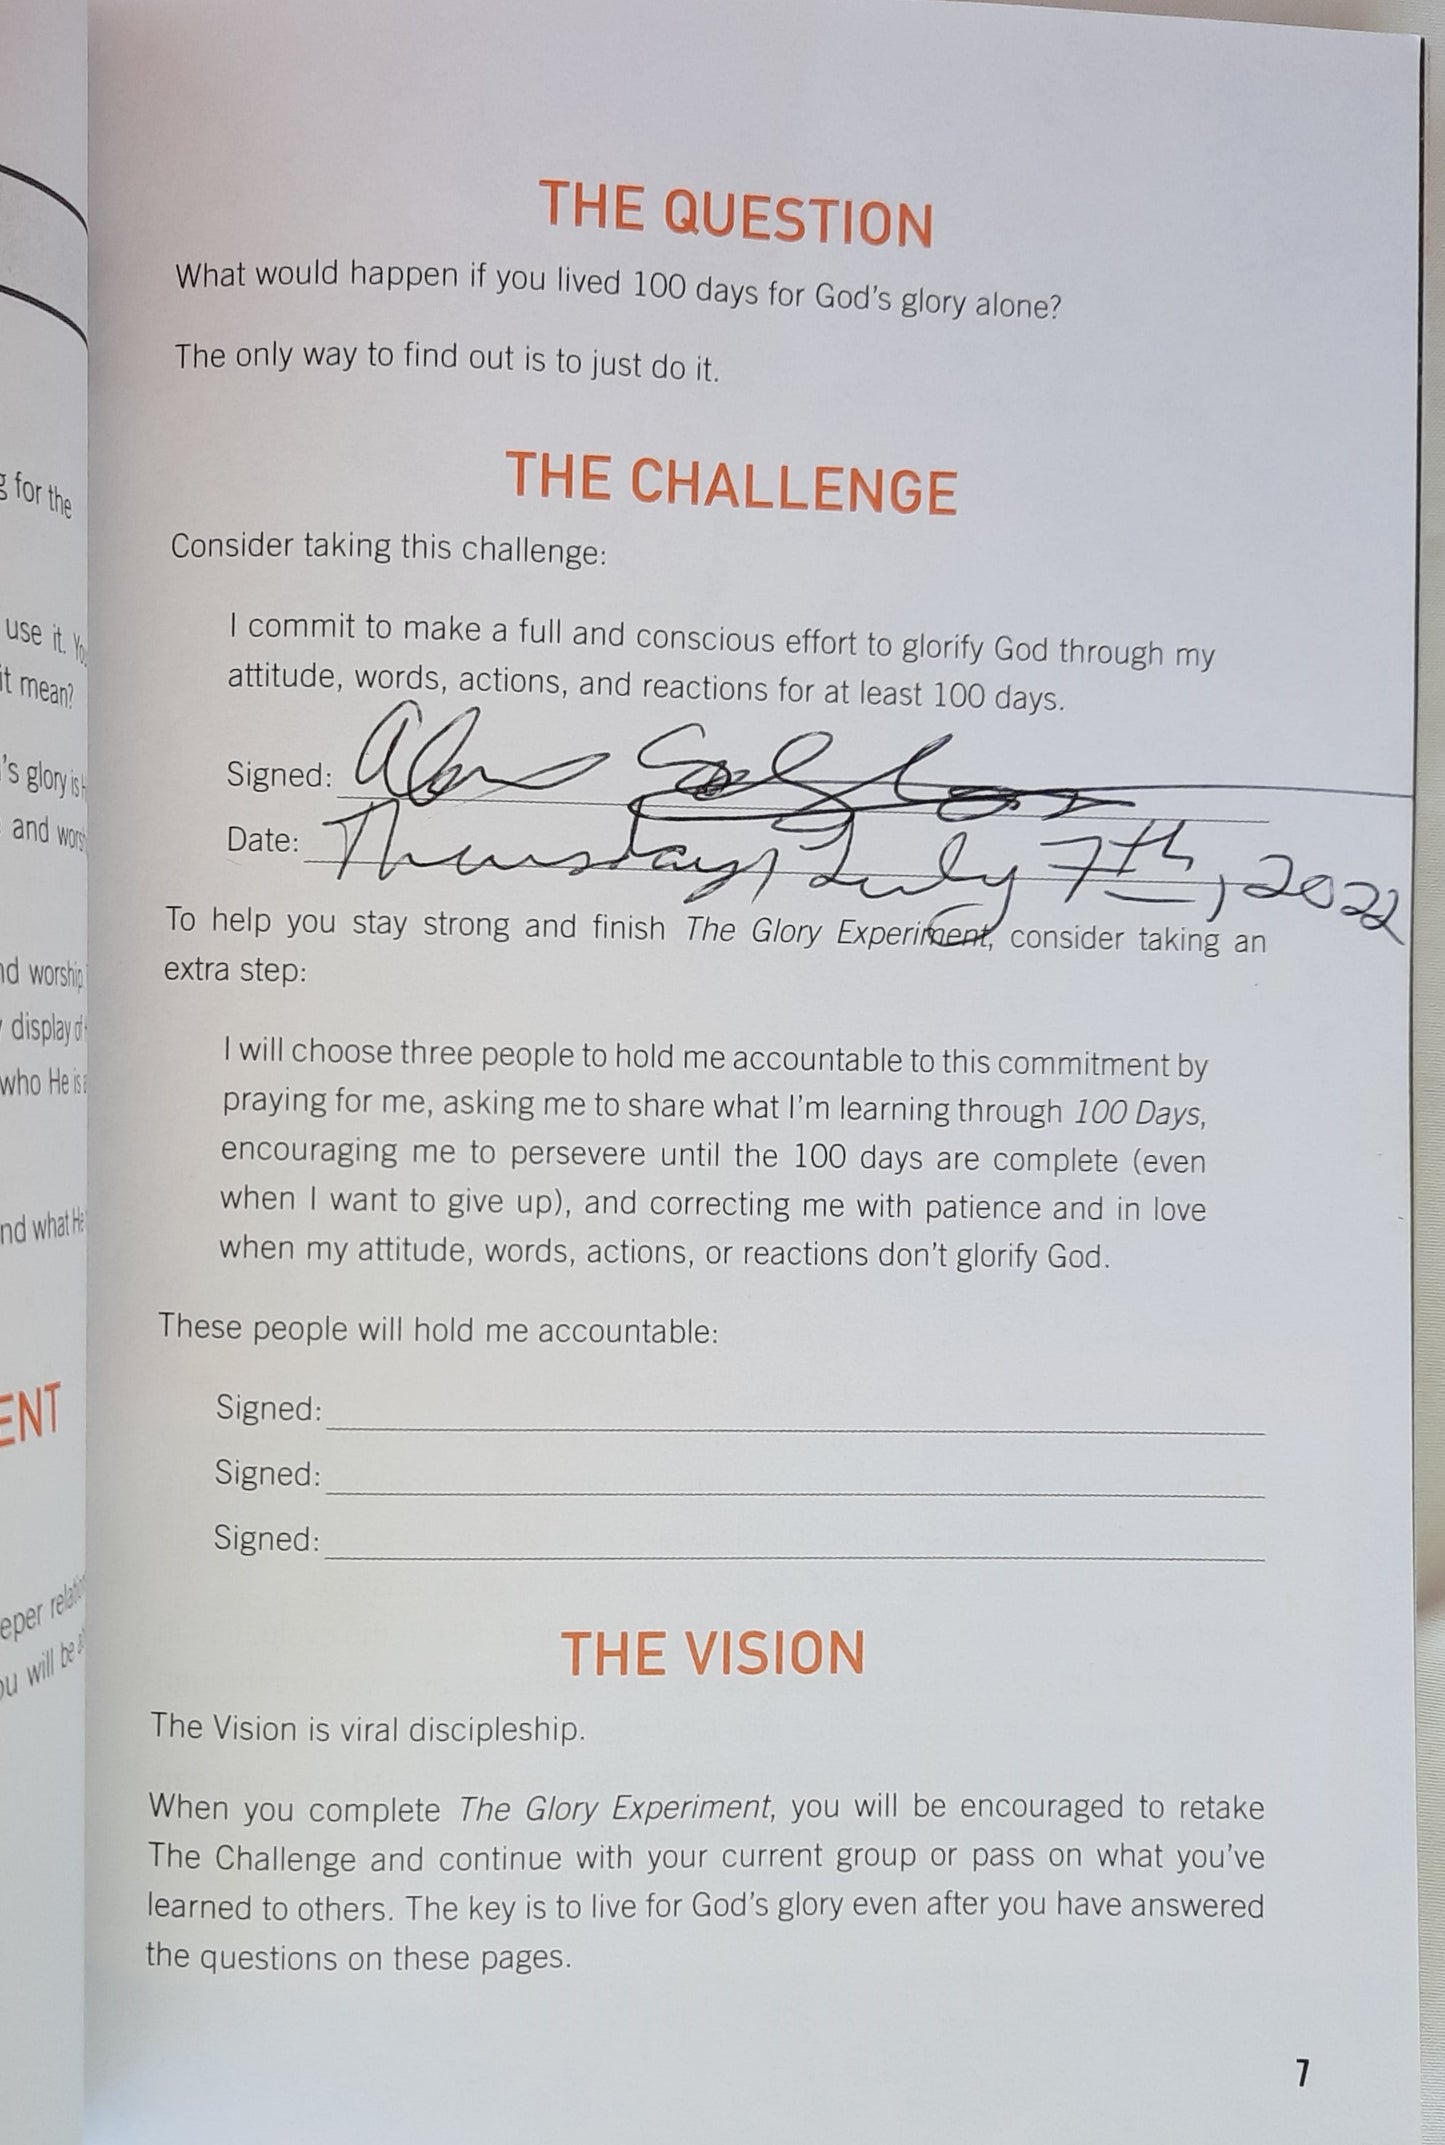 g for the
use it. You
it mean?
's glory is
and
nd worship
display of
who He is
nd what He
ENT
eper
ou will be
THE QUESTION
What would happen if you lived 100 days for God's glory alone?
The only way to find out is to just do it.
THE CHALLENGE
Consider taking this challenge:
I commit to make a full and conscious effort to glorify God through my
attitude, words, actions, and reactions for at least 100 days.
Signed:
Date: Thursday, July 7th, 2022
To help you stay strong and finish The Glory Experiment, consider taking an
extra step:
I will choose three people to hold me accountable to this commitment by
praying for me, asking me to share what I'm learning through 100 Days,
encouraging me to persevere until the 100 days are complete (even
when I want to give up), and correcting me with patience and in love
when my attitude, words, actions, or reactions don't glorify God.
These people will hold me accountable:
Signed:
Signed:
Signed:
THE VISION
The Vision is viral discipleship.
When you complete The Glory Experiment, you will be encouraged to retake
The Challenge and continue with your current group or pass on what you've
learned to others. The key is to live for God's glory even after you have answered
the questions on these pages.
7